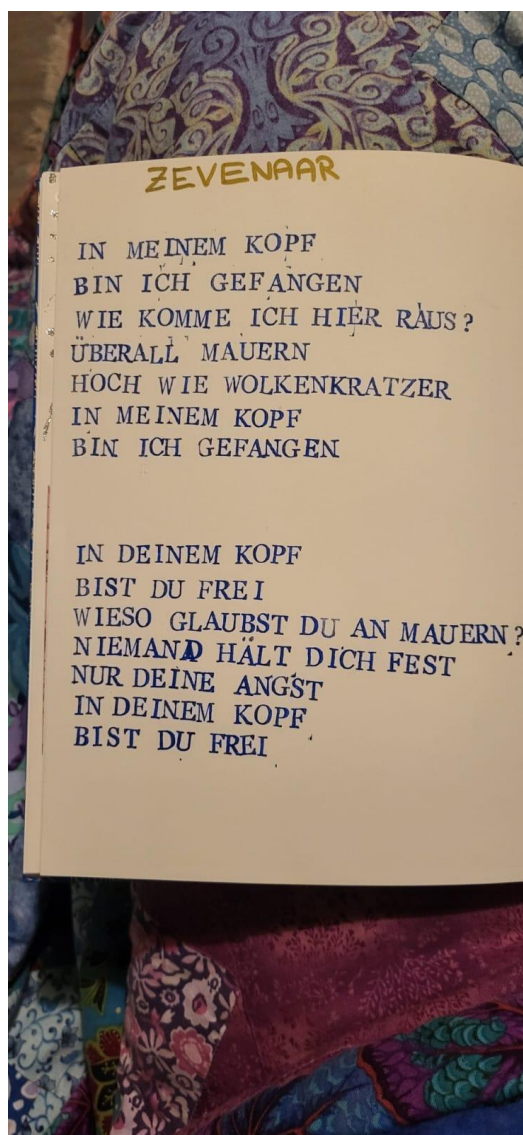 ZEVENAAR
IN MEINEM KOPF
BIN ICH GEFANGEN
WIE KOMME ICH HIER RAUS?
ÜBERALL MAUERN
HOCH WIE WOLKENKRATZER
IN MEINEM KOPF
BIN ICH GEFANGEN
IN DEINEM KOPF
BIST DU FREI
WIESO GLAUBST DU AN MAUERN?
NIEMAND HÄLT DICH FEST
NUR DEINE ANGST
IN DEINEM KOPF
BIST DU FREI